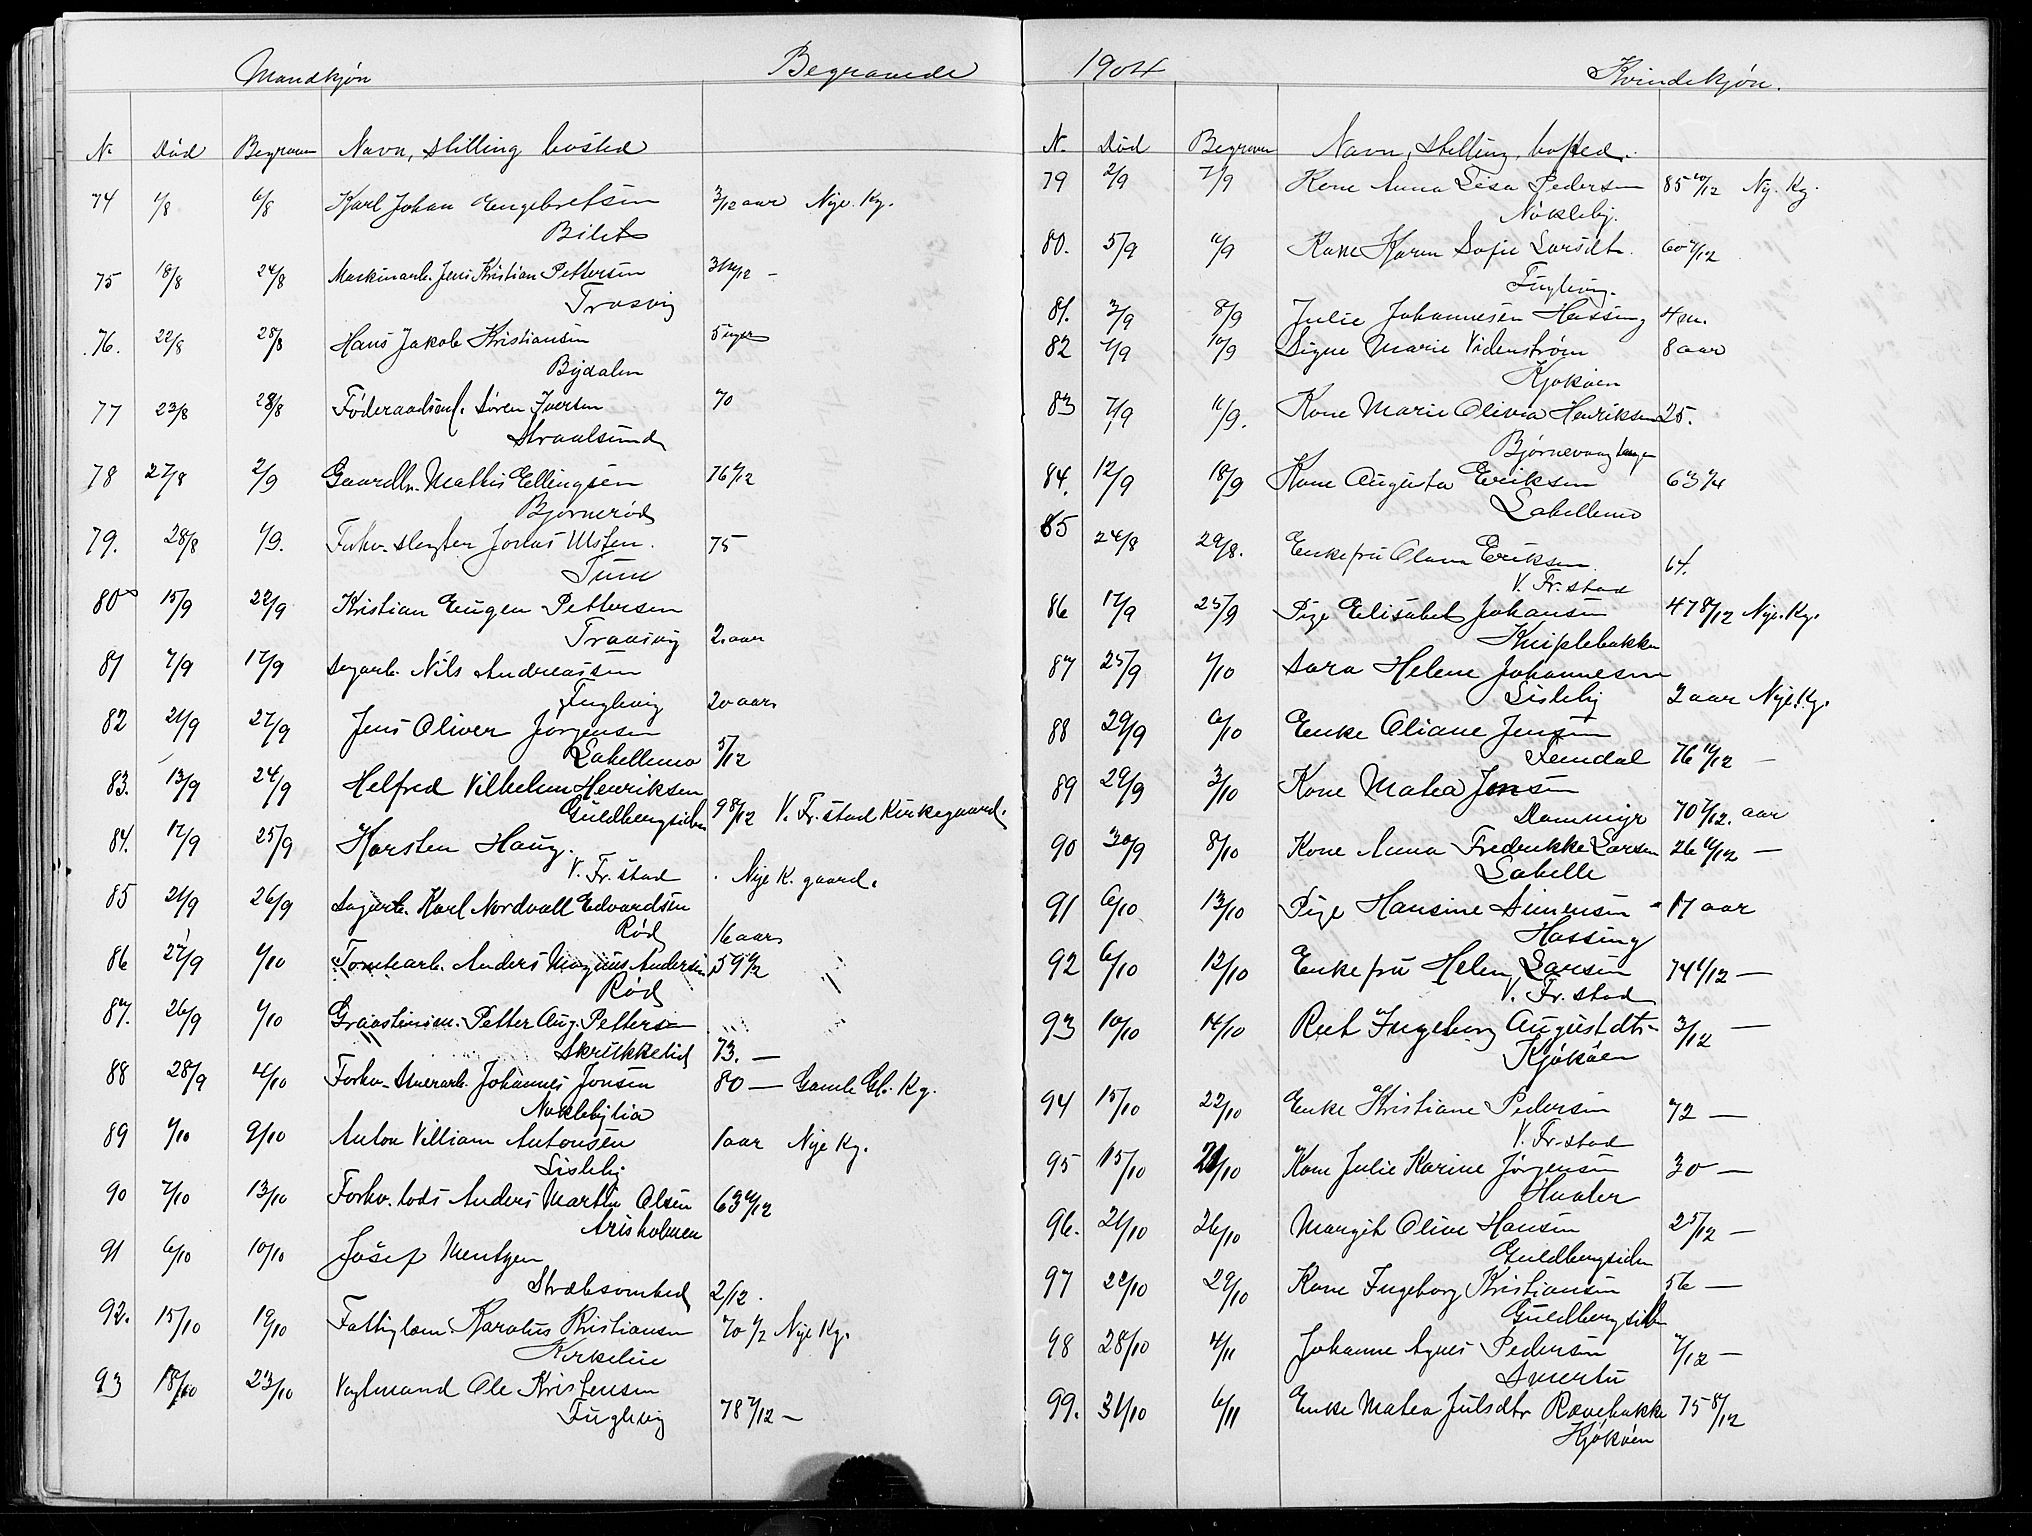 Mandkjøn Begravede
N. Død Begravn Navn, stilling bosted
74 1/8 6/8 Karl Johan Engebretsen 3/12 aar Nye. Kg.
Bilet
75 18/8 24/8 Maskinarb. Jens Kristian Pettersen
Trosvig
76. 22/8 28/8 Hans Jakob Kristiansen 5 uger
Bydalen
77 23/8 28/8 Føderaadsm. Søren Iversen 70
Straalsund
78 27/8 2/9 Gaardbr. Mathis Ellingsen
Bjørnerød
79. 28/8 1/9. Forhv. slagter Jonas Ulsten. 75
Tune
80 15/9 22/9 Kristian Eugen Pettersen
Traasvig 2. aar
81 7/9 17/9 Sagarb. Nils Andreassen
Fuglevig 20 aar
82 21/9 27/9 Jens Oliver Jørgensen
Labellemo 5/12
83. 13/9 24/9 Helfred Vilhelm Henriksen
Guldbergsiden 9 8/12 V. Fr. stad Kirkegaard.
84. 17/9 25/9 Karsten Haug.
V. Fr. stad . Nye K. gaard.
85 21/9 26/9 Sagarb. Karl Nordvall Edvardsen
Rød 16 aar
86 27/9 1/10 Tomtearb. Anders Magnus Andersen
Rød
87. 26/9 1/10 Graastensm. Petter Aug. Pettersen
Skrukkelid 73. —
88 28/9 4/10 Forhv. Johannes Jonsen 80 — Gamle Gl. Kg.
Nøklebylia
89 1/10 9/10 Anton Villiam Antonsen 1 aar Nye Kg.
Lisleby
90 7/10 13/10 Forhv. lods Anders Martin Olsen
Arisholmen
91 6/10 10/10 Josef Mentzen
Stræbsomhed 2/12.
92. 15/10 19/10 Fattiglem. Karolus Kristiansen 70 1/2 Nye Kg.
Kirkelie
93 18/10 23/10 Vægtmand Ole Kristensen
Fuglevig 78 7/12 —
1904 Kvindekjøn.
N. Død Begravn Navn, stilling, bosted.
79 2/9 7/9 Kone Anna Lisa Pedersen 85 10/12 Ny. Kg.
Nøkleby.
80. 5/9 11/9 Kone Karen Sofie Larsdt.
Fuglevig.
81. 3/9 8/9 Julie Johannesen Hassing 4 m.
82 7/9 10/9 Signe Marie Videnstrøm 8 aar
Kjøkøen
83 7/9 11/9. Kone Marie Olivia Henriksen 25.
Bjørnevaag
84. 12/9 18/9 Kone Augusta Eriksen 63 1/4
Labellemo
85 24/8 29/8. Enkefru Olava Eriksen 64.
V. Fr. stad
86 17/9 25/9 Pige Elisabet Johansen 47 8/12 Nye. Kg.
Kniplebakken
87 25/9 1/10 Sara Helene Johannesen
Lisleby 2 aar Nye. Kg.
88 29/9 6/10 Enke Oliane Jensen
Femdal 76 10/12 —
89 29/9 3/10 Kone Matea Jensen
Dammyr 70 7/12. aar
90 30/9 8/10 Kone Anna Fredrikke Larsen
Labelle
91 6/10 13/10 Pige Hansine Simensen 17 aar
Hassing
92 6/10 12/10 Enkefru Helen Larsen 74 1/12 —
V. Fr. stad
93 10/10 14/10 Rut Ingeborg Augustdtr 3/12 —
Kjøkøen
94 15/10 22/10 Enke Kristiane Pedersen 72 —
V. Fr. stad
95 15/10 21/10 Kone Julie Karine Jørgensen 30 —
Hvaler
96. 21/10 26/10 Margit Olive Hansen 2 5/12 —
Guldbergsiden
97 22/10 29/10 Kone Ingeborg Kristiansen 56 —
Guldbergsiden
98 28/10 4/11 Johanne Agnes Pedersen 7/12 —
Smertu
99. 31/10 6/11 Enke Matea Julsdtr Rævebakke 75 8/12
Kjøkøen